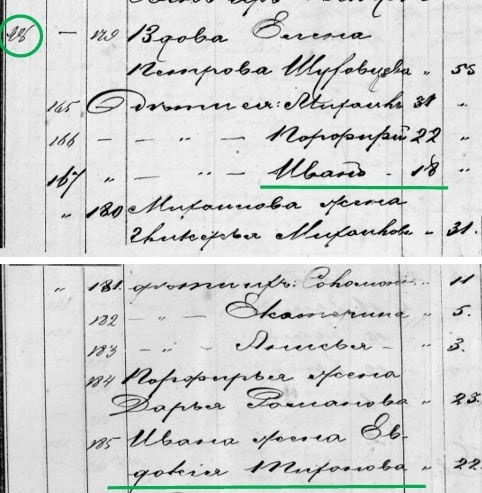 28 — 179 Вдова Елена
Петрова Шубовцева „ 55
165 Дѣти ея: Михаилъ 31 „
166 — „ — Порфирій 22 „
167 „ — „ — Иванъ - 18 „
„ 180 Михаилова жена
Гликерья Михайлова „ 31.
„ 181. дѣти ихъ: 11
182 — „ — Екатерина „ 5.
183 — „ — Анисья — „ 3.
184 Порфирья жена
Дарья Романова „ 23.
185 Ивана жена Ев-
докія Тихонова „ 22